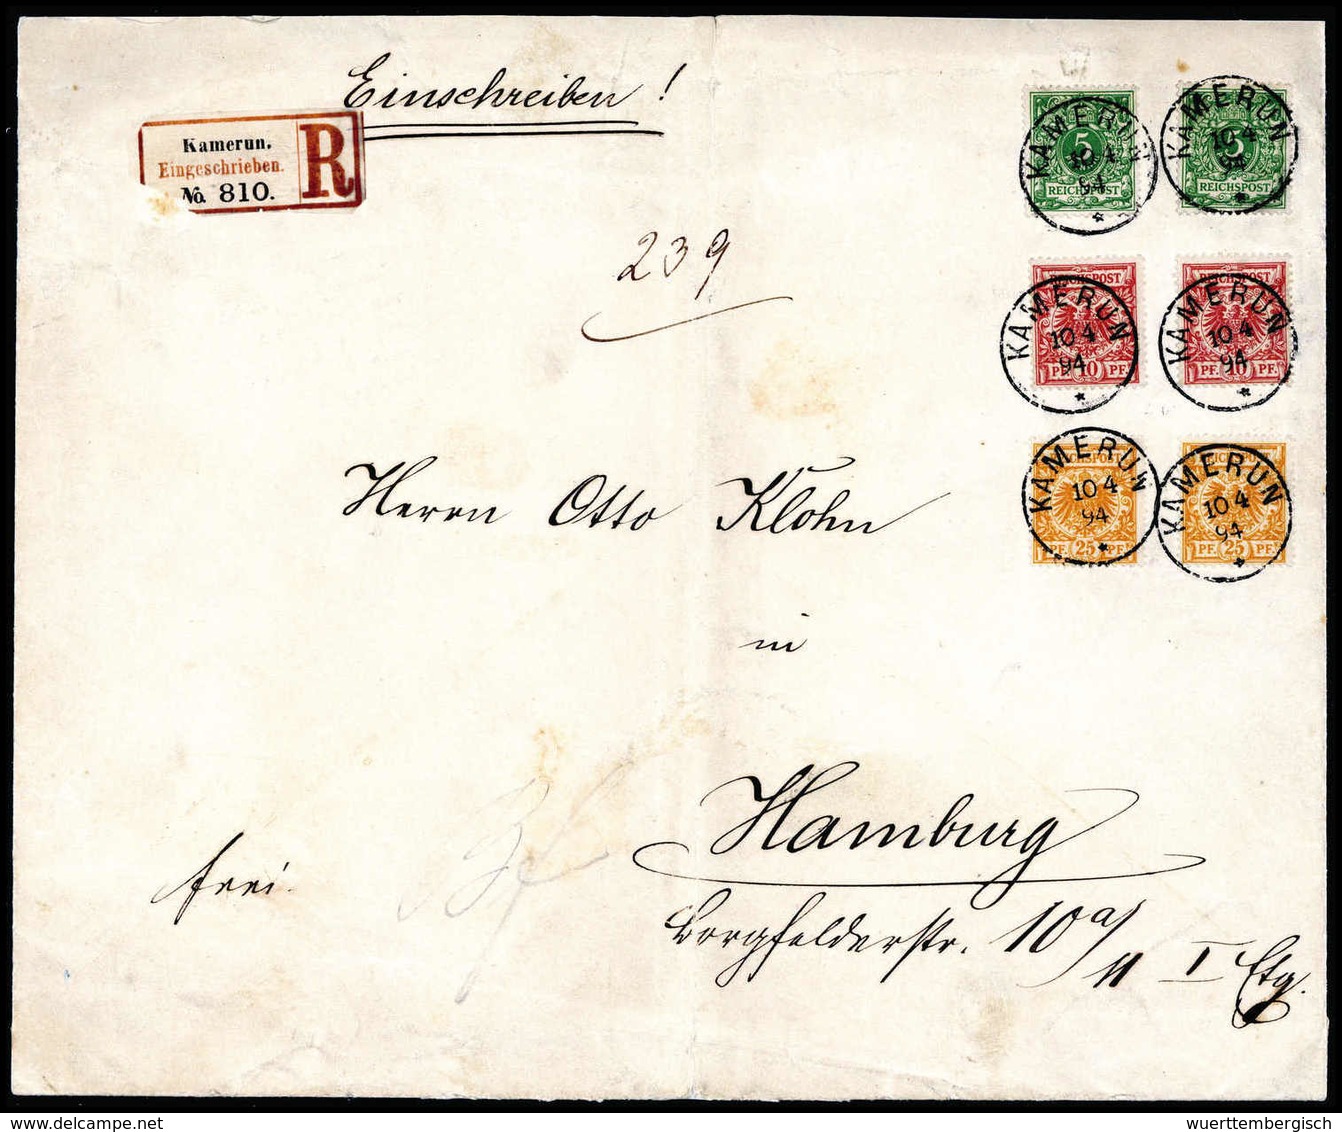 Einschreiben!
Kamerun.
Eingeschrieben.
No. 810.
R
239
KAMERUN
10 4
94
5
REICHSPOST
KAMERUN
10 4
94
5
REICHSPOST
REICHSPOST
KAMERUN
10 4
94
PF. 10 PF.
REICHSPOST
KAMERUN
10 4
94
PF. 10 PF.
REICHSPOST
KAMERUN
10 4
94
PF. 25 PF.
REICHSPOST
KAMERUN
10 4
94
PF. 25 PF.
Herrn Otto Klohn
in
Hamburg
frei.
Borgfelderstr. 10 a/
II I Etg.
wuerttembergisch